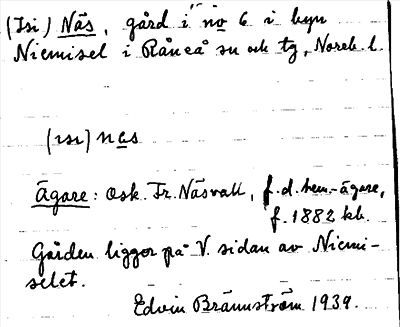 (Isi) Näs, gård i no 6 i byn
Niemisel i Råneå sn och tg, Norrb. l.
(ısı) nɑs
Ägare: Osk. Fr. Näsvall, f.d. hem.-ägare,
f. 1882 kb.
Gården ligger på V. sidan av Niemi-
selet.
Edvin Brännström 1939.